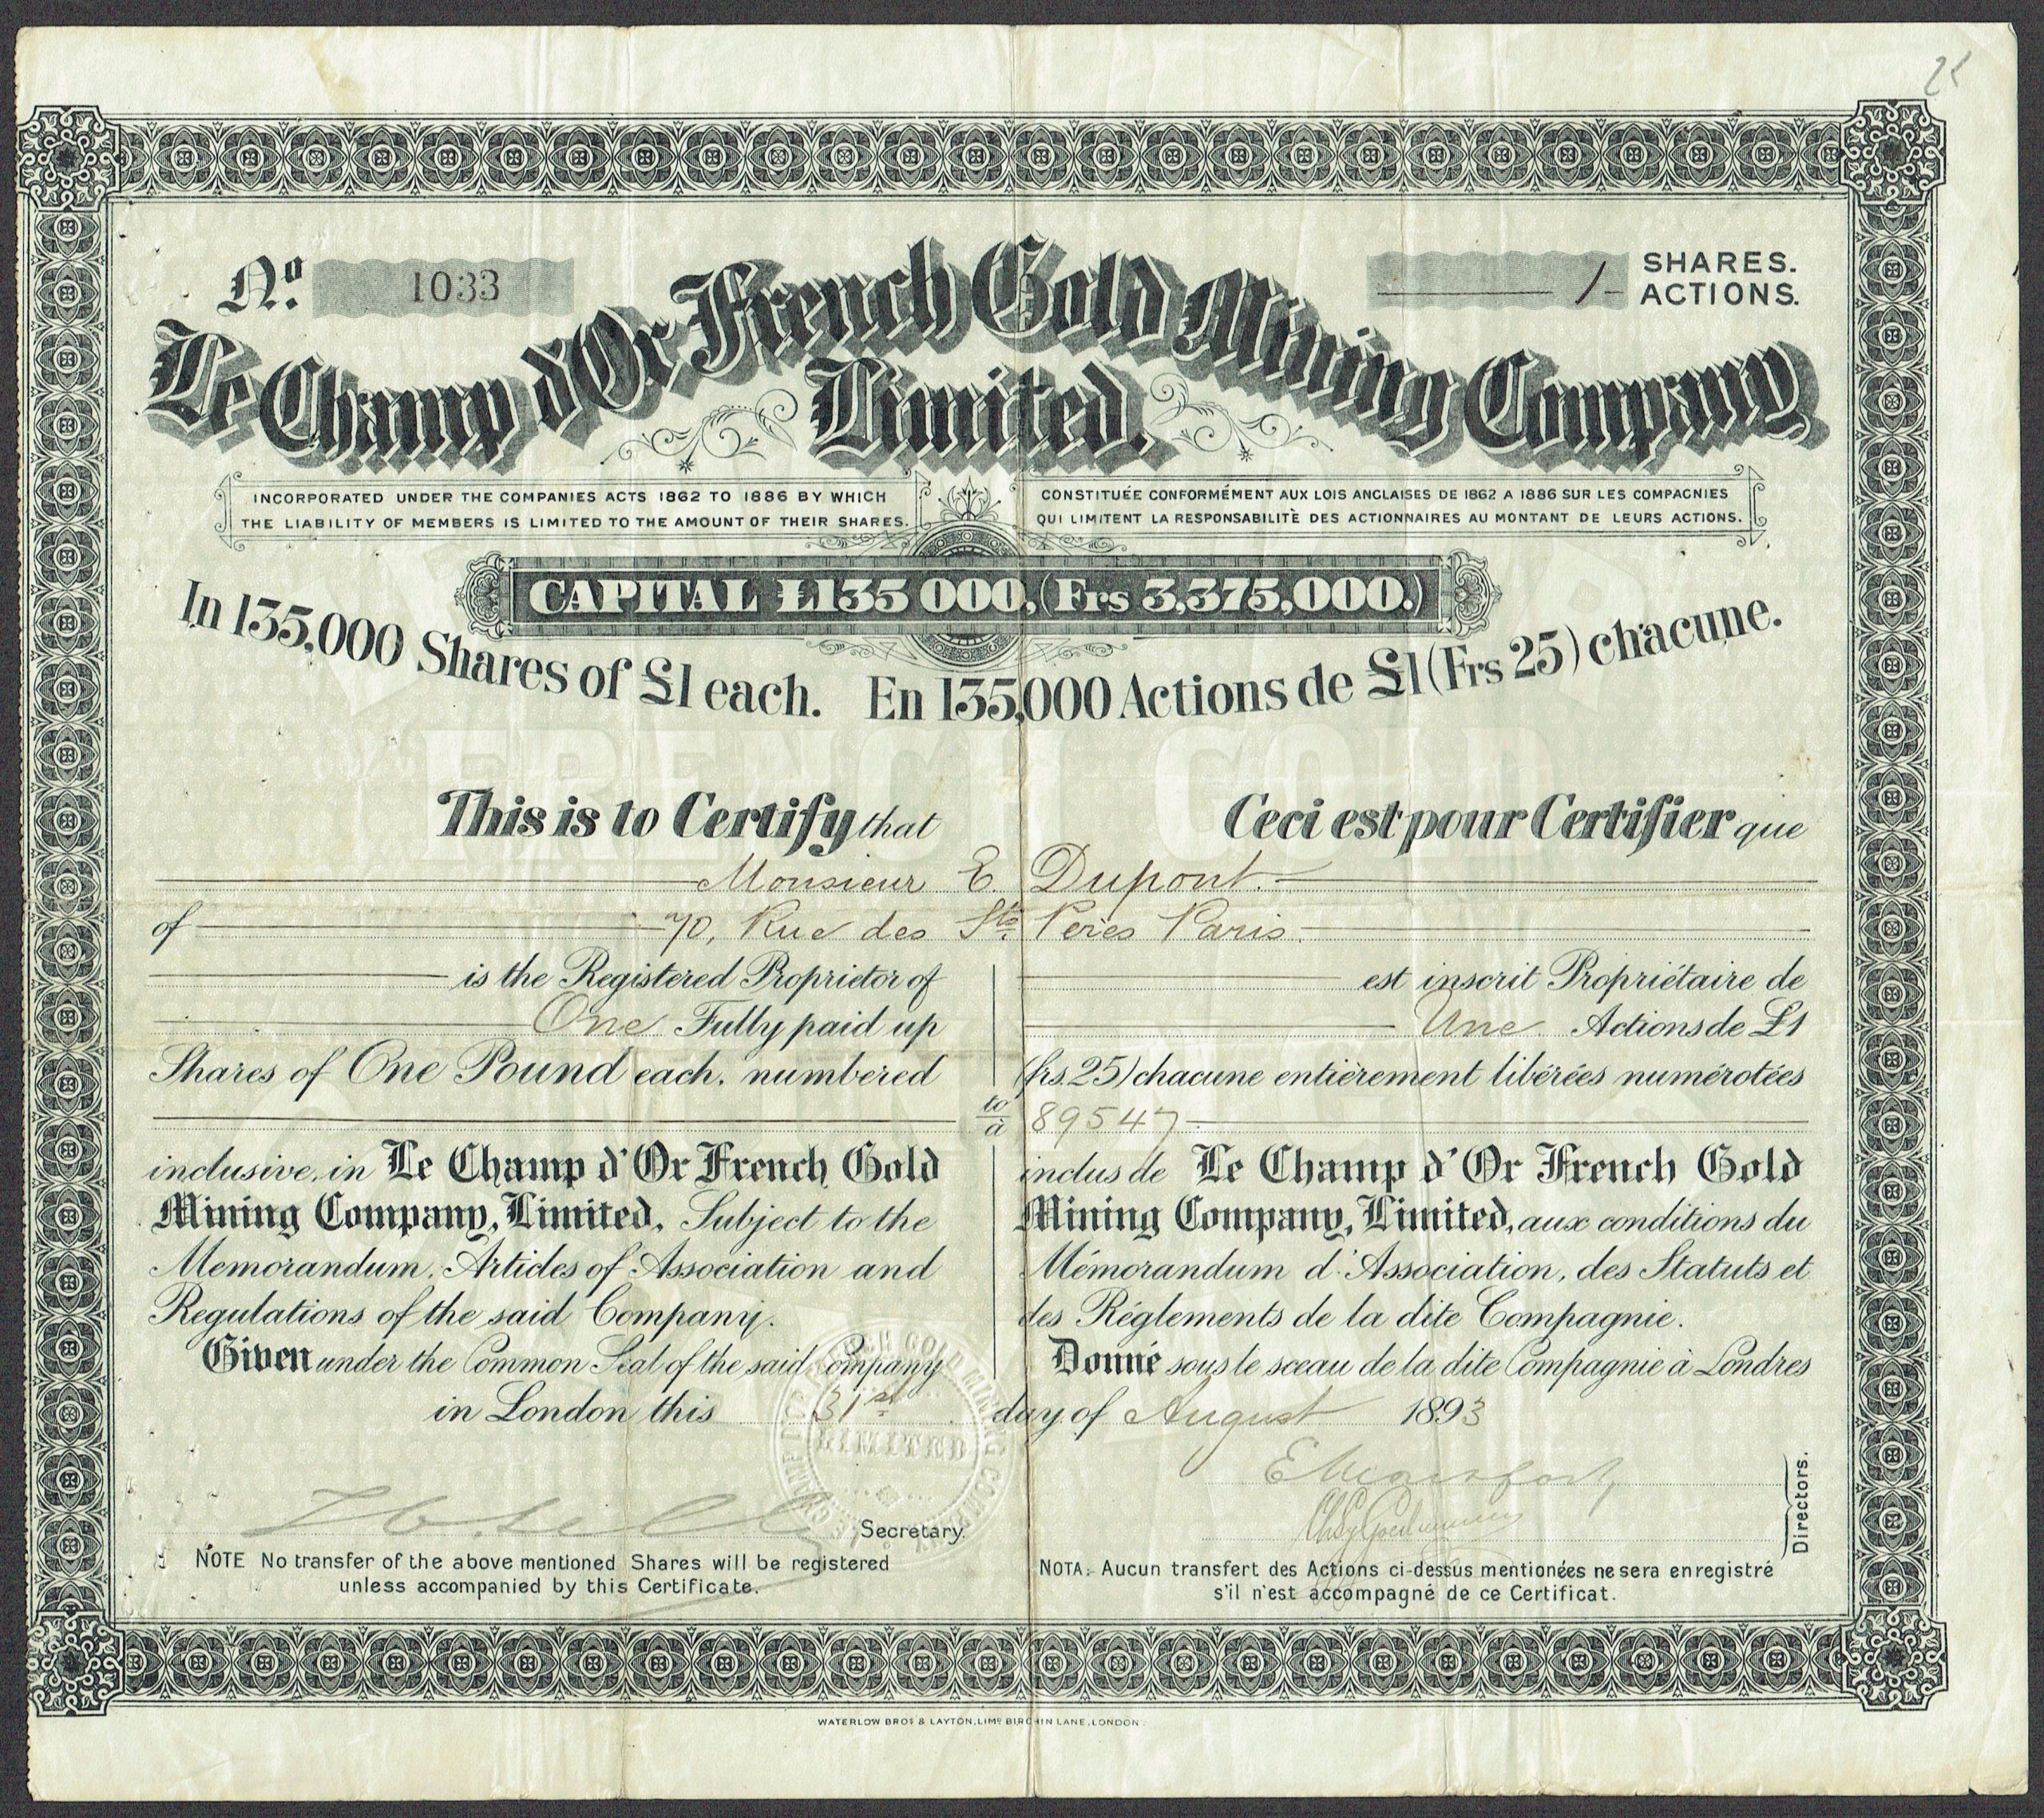 25
Nº 1033
1 SHARES.
ACTIONS.
Le Champ d'Or French Gold Mining Company,
Limited.
INCORPORATED UNDER THE COMPANIES ACTS 1862 TO 1886 BY WHICH
THE LIABILITY OF MEMBERS IS LIMITED TO THE AMOUNT OF THEIR SHARES.
CONSTITUÉE CONFORMÉMENT AUX LOIS ANGLAISES DE 1862 A 1886 SUR LES COMPAGNIES
QUI LIMITENT LA RESPONSABILITÈ DES ACTIONNAIRES AU MONTANT DE LEURS ACTIONS.
CAPITAL £135 000, (Frs 3,375,000.)
In 135,000 Shares of £1 each. En 135,000 Actions de £1 (Frs 25) chacune.
FRENCH GOLD
This is to Certify that
Ceci est pour Certifier que
Monsieur E. Dupont.
of 70, Rue des Sts Pères Paris.
is the Registered Proprietor of
One Fully paid up
Shares of One Pound each, numbered
est inscrit Propriétaire de
Une Actions de £1
(frs. 25) chacune entièrement libérées numérotées
to
à 89547
inclusive, in Le Champ d'Or French Gold
Mining Company, Limited, Subject to the
Memorandum, Articles of Association and
Regulations of the said Company.
Given under the Common Seal of the said Company
inclus de Le Champ d'Or French Gold
Mining Company, Limited, aux conditions du
Mémorandum d'Association, des Statuts et
des Réglements de la dite Compagnie.
Donné sous le sceau de la dite Compagnie à Londres
in London this 31st day of August 1893
LE CHAMP D'OR FRENCH GOLD MINING COMPANY
LIMITED
Secretary.
Directors.
NOTE No transfer of the above mentioned Shares will be registered
unless accompanied by this Certificate.
NOTA: Aucun transfert des Actions ci-dessus mentionées ne sera enregistré
s'il n'est accompagné de ce Certificat.
WATERLOW BROS & LAYTON, LIMD BIRCHIN LANE, LONDON.